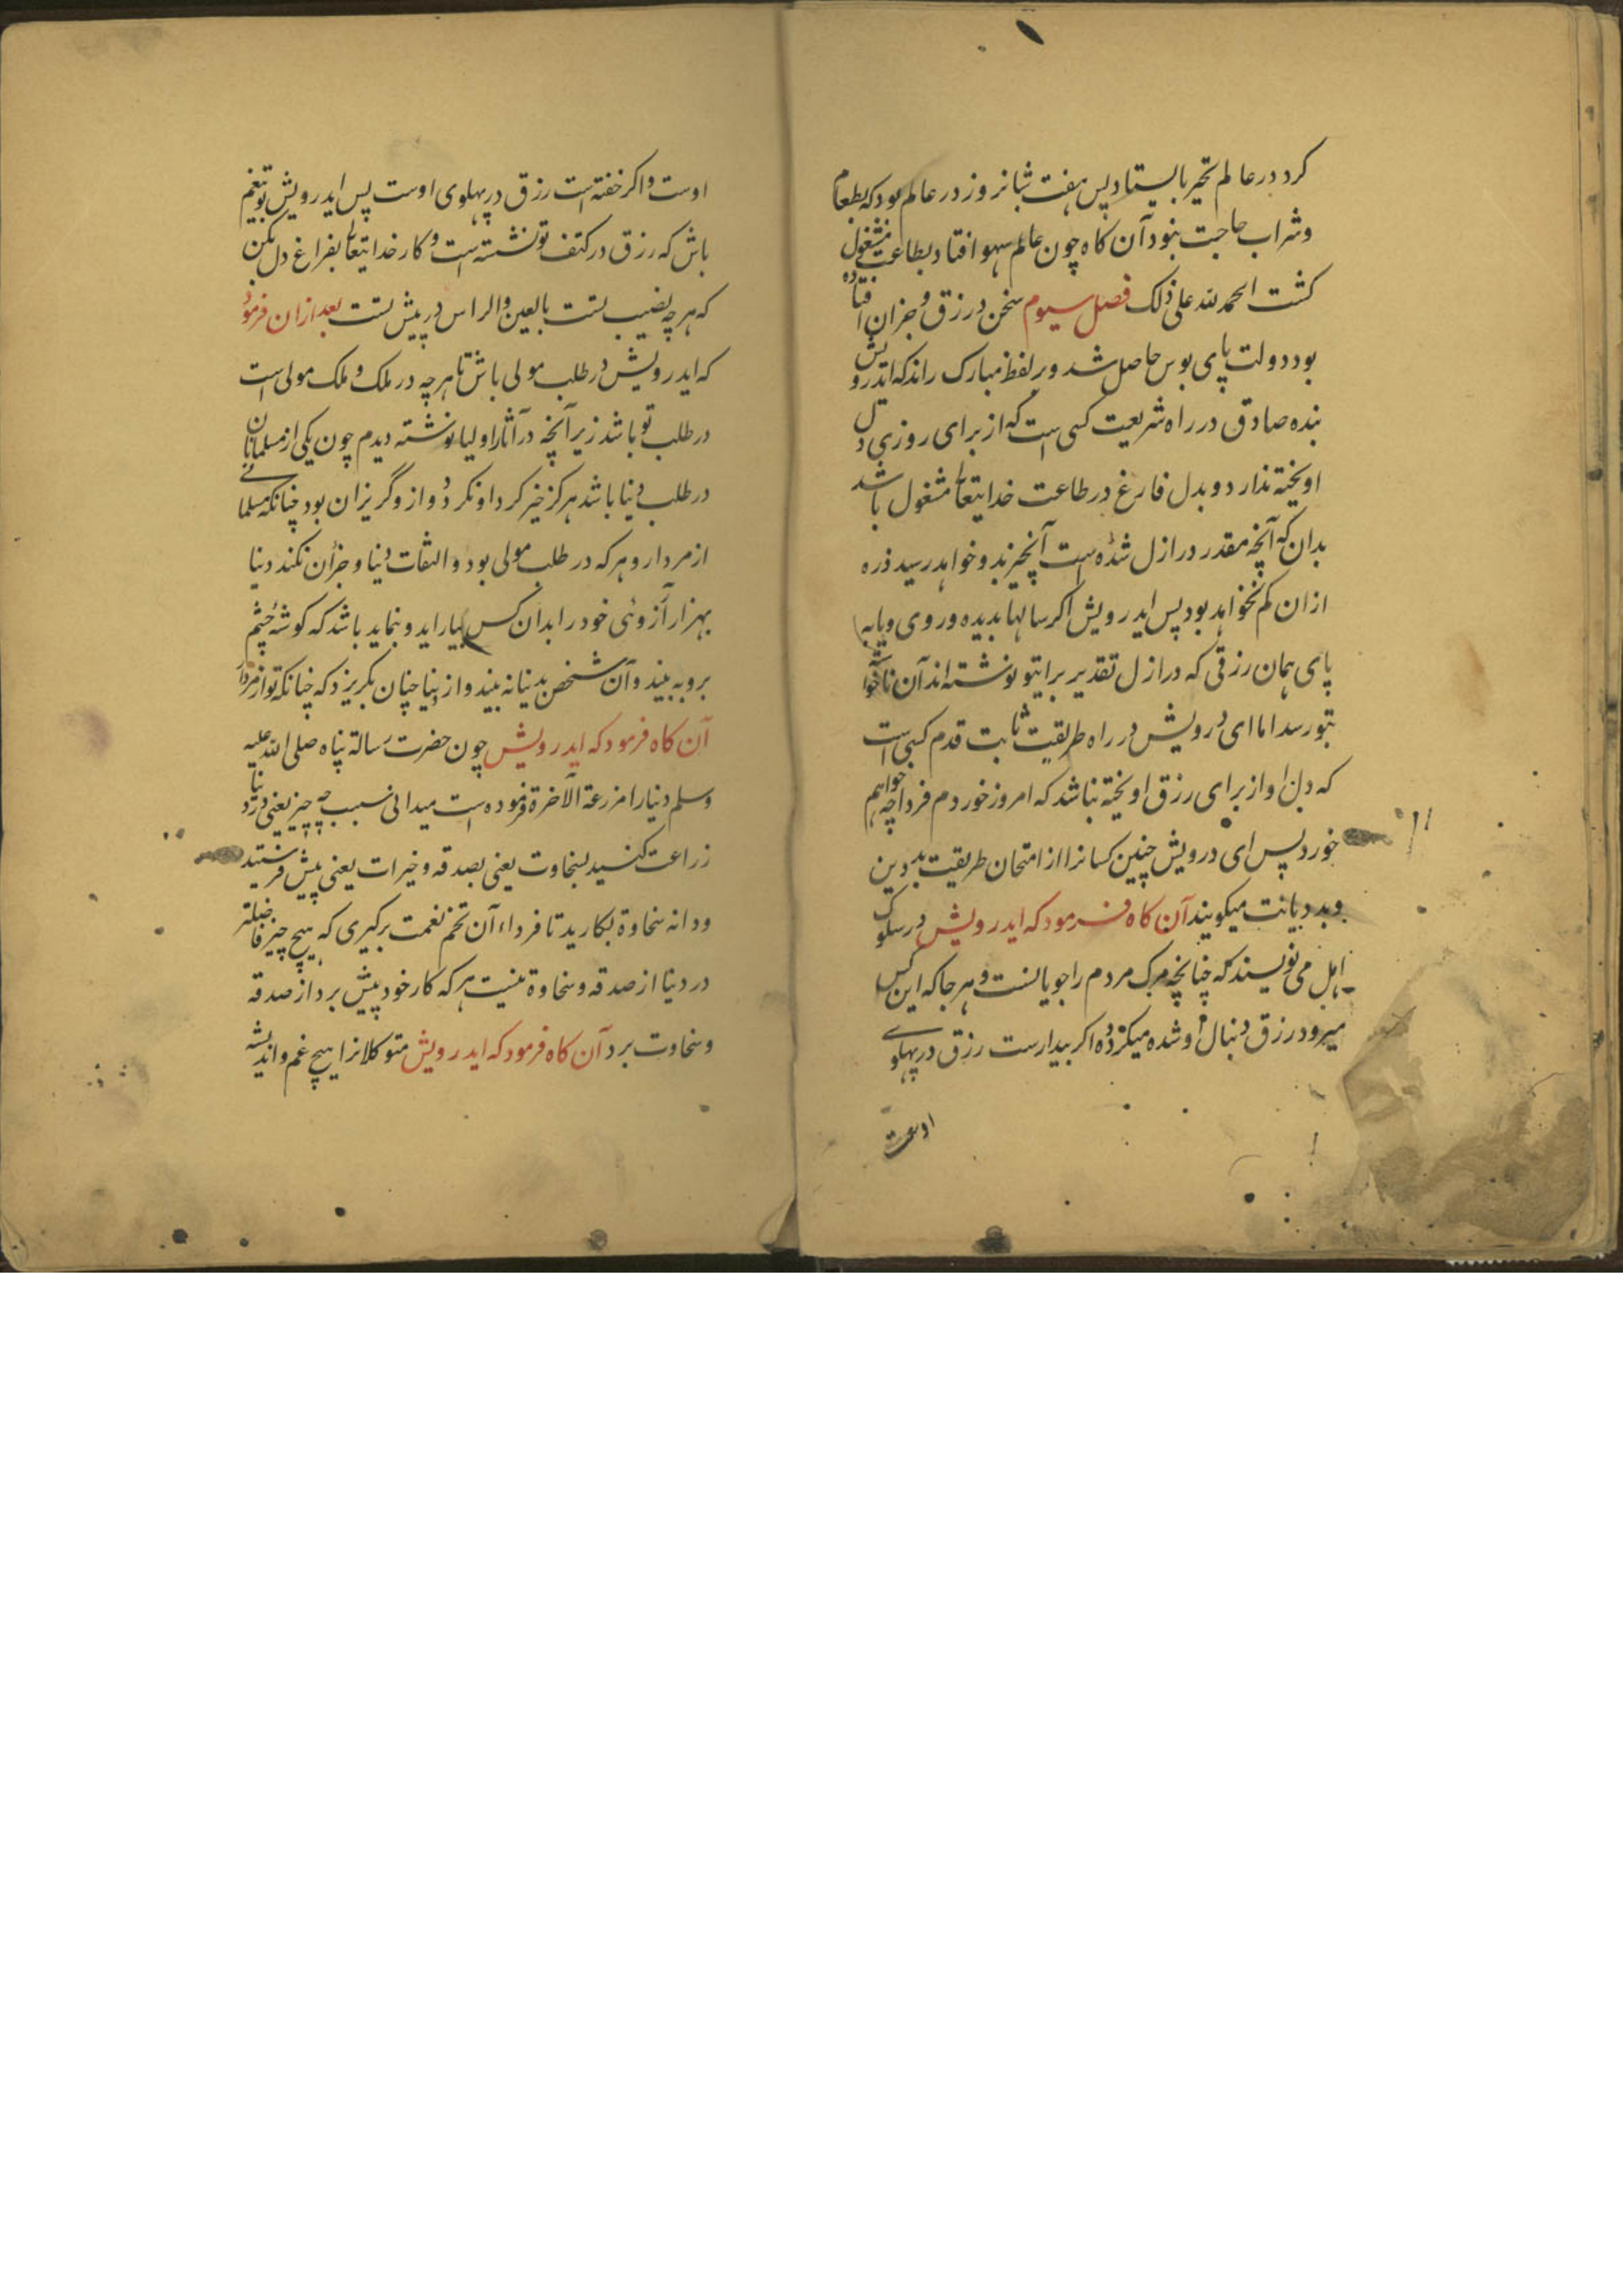 کرد در عالم تحیر بایستاد پس هفت شبانروز در عالم بود که بطعام
وشراب حاجت نبود آن کاه چون عالم سهو افتاد بطاعت مشغول
کشت الحمد لله علی ذلک فصل سیوم سخن در رزق و جزان افتاده
بود دولت پای بوس حاصل شد و بر لفظ مبارک راند که ایدرویش
بنده صادق در راه شریعت کسی است که از برای روزی دل
اویخته ندارد و بدل فارغ در طاعت خدایتعالی مشغول باشد
بدان که آنچه مقدر در ازل شده است آنچیز بدو خواهد رسید ذره
ازان کم نخواهد بود پس ایدرویش اکر سالها بدیده و روی و یا به
پای همان رزقی که در ازل تقدیر برایتو نوشته‌اند آن ناخواسته
بتو رسد اما ای درویش در راه طریقت ثابت قدم کسی است
که دل او از برای رزق اویخته نباشد که امروز خوردم فردا چه خواهم
خورد پس ای درویش چنین کسانرا از امتحان طریقت بد دین
و بد دیانت میکویند آن کاه فرمود که ایدرویش در سلوک
اهل می نویسند که چنانچه مرک مردم را جویانست و هر جا که این کس
میرود رزق دنبال او شده میکردد اکر بیدارست رزق در پهلوے
اوست
اوست و اکر خفته است رزق در پهلوی اوست پس ایدرویش تو بیغم
باش که رزق در کتف تو نشسته است و کار خدایتعالی بفراغ دل بکن
که هر چه نصیب تست بالعین والراس در پیش تست بعد ازان فرمود
که ایدرویش در طلب مولی باش تا هر چه در ملک و ملک مولی است
در طلب تو باشد زیر آنچه در آثار اولیا نوشته دیدم چون یکی از مسلمانان
در طلب دنیا باشد هرکز خیر کرد او نکردد و از و گریزان بود چنانکه مسلمانے
از مردار و هر که در طلب مولی بود و التفات دنیا و جزآن نکند دنیا
بهزار آرزوئی خود را بدان کس بیاراید و بنماید باشد که کوشۀ چشم
برو به بیند و آن شخص بدنیا نه بیند و از دنیا چنان بکریزد که چنانکه تو از مردار
آن کاه فرمود که ایدرویش چون حضرت رسالة پناه صلی الله علیه
وسلم دنیا را مزرعة الآخرة فرموده است میدانی سبب چه چیز یعنی در دنیا
زراعت کنید بسخاوت یعنی بصدقه و خیرات یعنی پیش فرستید
ودانه سخاوة بکارید تا فرداء آن تخم نعمت برکیری که هیچ چیز فاضلتر
در دنیا از صدقه و سخاوة نیست هر که کار خود پیش برد از صدقه
وسخاوت برد آن کاه فرمود که ایدرویش متوکلانرا هیچ غم و اندیشه